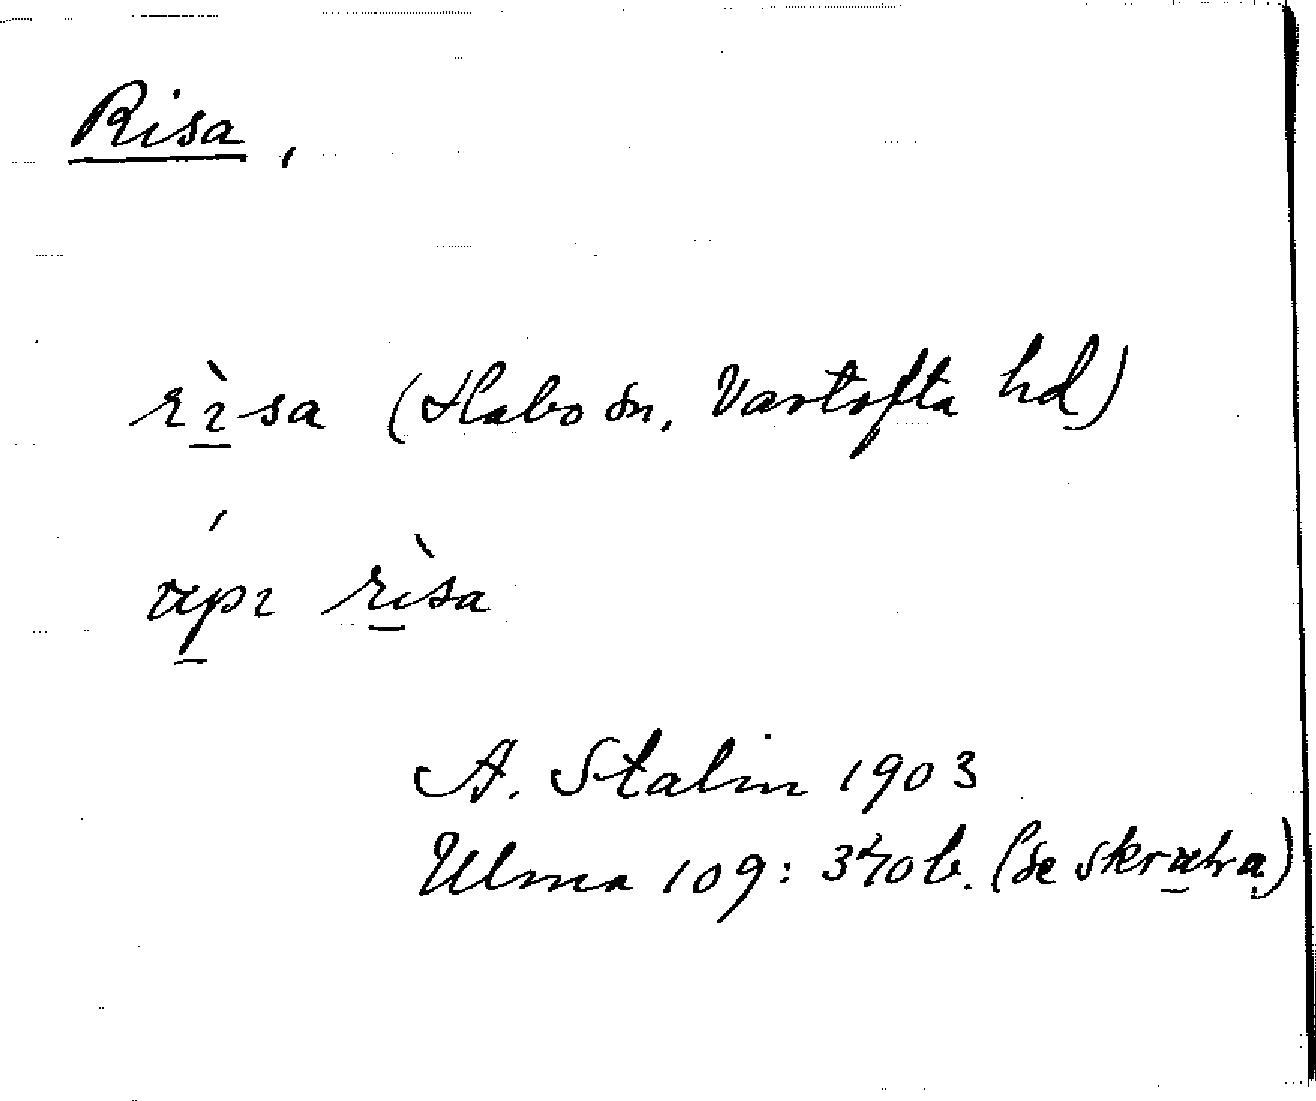 Risa,
rìsa (Habo sn, Vartofta hd)
rìsa
A. Stalin 1903
Ulma 109: 370 b. (se skrætra)